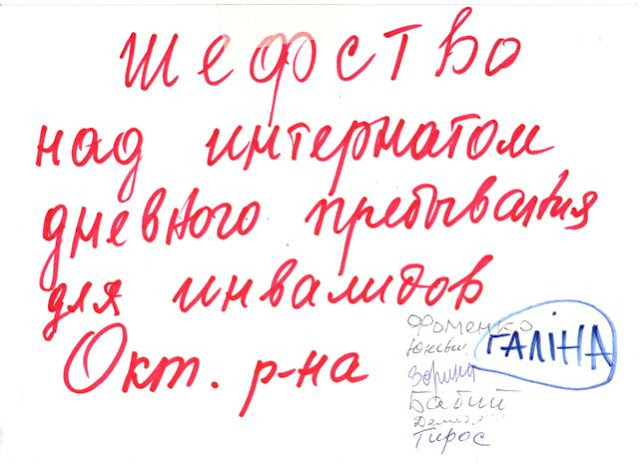 шефство
над интернатом
дневного пребывания
для инвалидов
Окт. р-на
Фоменко
ГАЛІНА
Бабий
Тирос